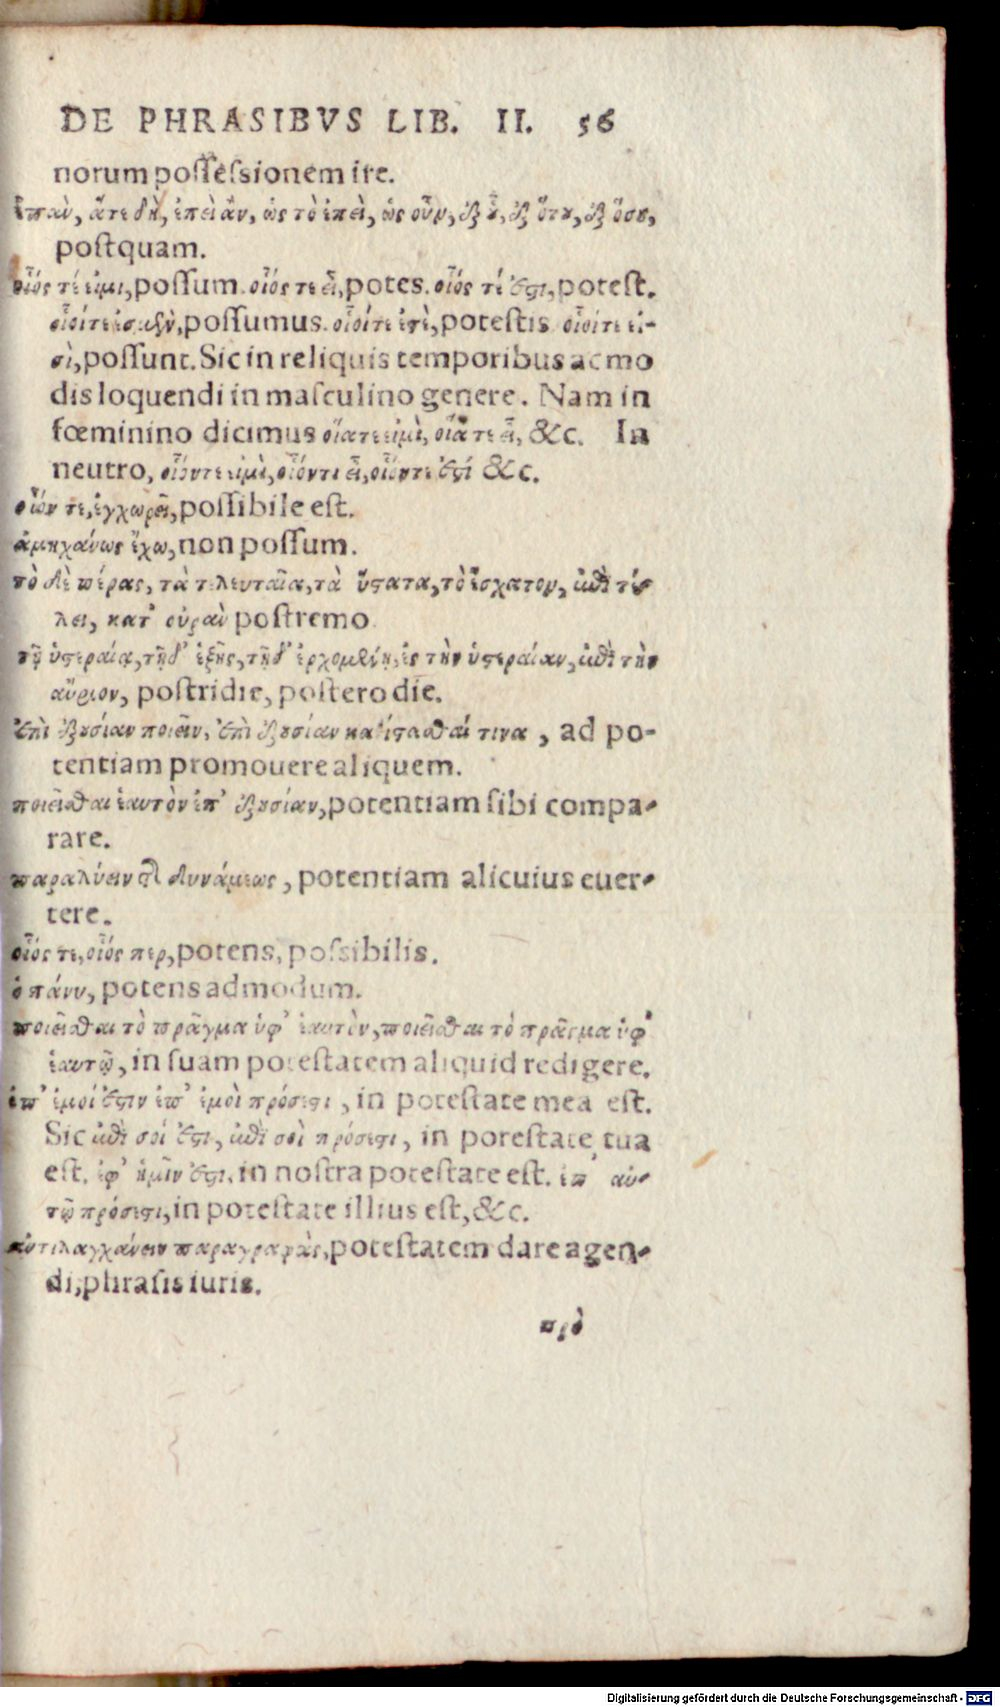 DE PHRASIBVS LIB. II. 56
norum possessionem ire.
ἐπὰν, ἅτε δὴ, ἐπεὶ ἂν, ὡς τὸ ἐπεὶ, ὡς οὖν, ἐξ οὗ, ἐξ ὅτου, ἐξ ὅσου,
postquam.
οἷός τέ εἰμι, possum. οἷός τε εἶ, potes. οἷός τέ ἐστι, potest.
οἷοί τε ἐσμὲν, possumus. οἷοί τε ἐστὲ, potestis. οἷοί τε εἰ-
σὶ, possunt. Sic in reliquis temporibus ac mo
dis loquendi in masculino genere. Nam in
fœminino dicimus οἵα τε εἰμὶ, οἵα τε εἶ, &c. In
neutro, οἷόν τε εἰμὶ, οἷόν τε εἶ, οἷόν τε ἐστί &c.
οἷόν τε, ἐγχωρεῖ, possibile est.
ἀμηχάνως ἔχω, non possum.
τὸ δὲ πέρας, τὰ τελευταῖα, τὰ ὕστατα, τὸ ἔσχατον, ἐπὶ τέ-
λει, κατ' οὐρὰν postremo
τῇ ὑστεραίᾳ, τῇ δ' ἑξῆς, τῇ δ' ἐρχομένῃ, ἐς τὴν ὑστεραίαν, ἐπὶ τὴν
αὔριον, postridie, postero die.
ἐπὶ ἐξουσίαν ποιεῖν, ἐπὶ ἐξουσίαν καθίστασθαί τινα, ad po-
tentiam promouere aliquem.
ποιεῖσθαι ἑαυτὸν ἐπ' ἐξουσίαν, potentiam sibi compa-
rare.
παραλύειν τῆς δυνάμεως, potentiam alicuius euer-
tere.
οἷός τε, οἷός περ, potens, possibilis.
ὁ πάνυ, potens admodum.
ποιεῖσθαι τὸ πρᾶγμα ὑφ' ἑαυτὸν, ποιεῖσθαι τὸ πρᾶγμα ὑφ'
ἑαυτῷ, in suam potestatem aliquid redigere.
ἐπ' ἐμοί ἐστιν ἐπ' ἐμοὶ πρόσεστι, in potestate mea est.
Sic ἐπὶ σοί ἐστι, ἐπὶ σοὶ πρόσεστι, in potestate tua
est. ἐφ' ἡμῖν ἐστι, in nostra potestate est. ἐπ' αὐ-
τῷ πρόσεστι, in potestate illius est, &c.
ἀντιλαγχάνειν παραγραφὰς, potestatem dare agen-
di, phrasis iuris.
πρὸ
Digitalisierung gefördert durch die Deutsche Forschungsgemeinschaft - DFG